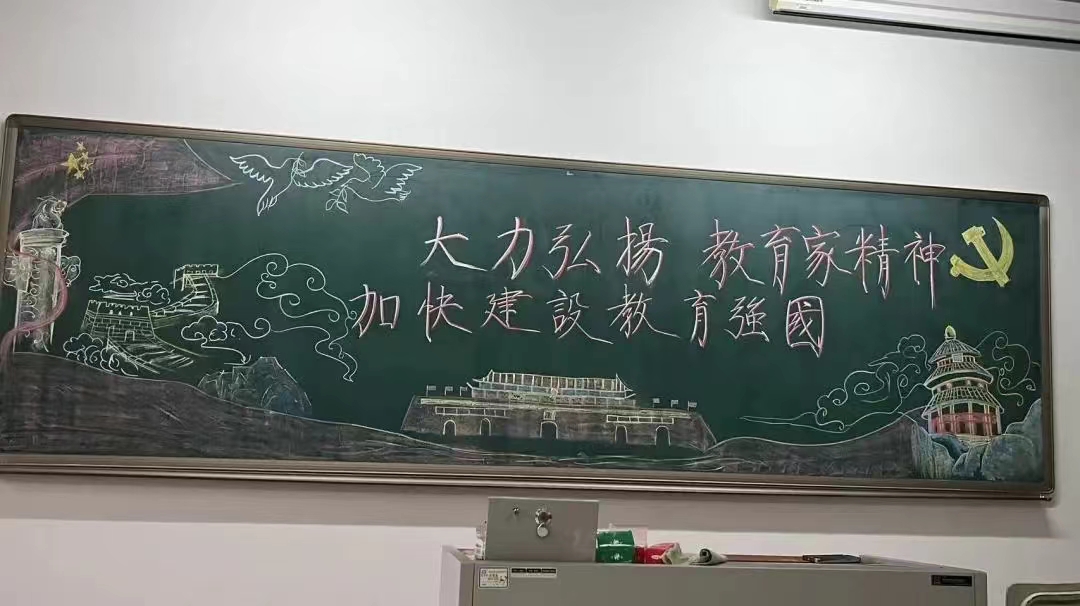 大力弘揚 教育家精神
加快建設教育強國